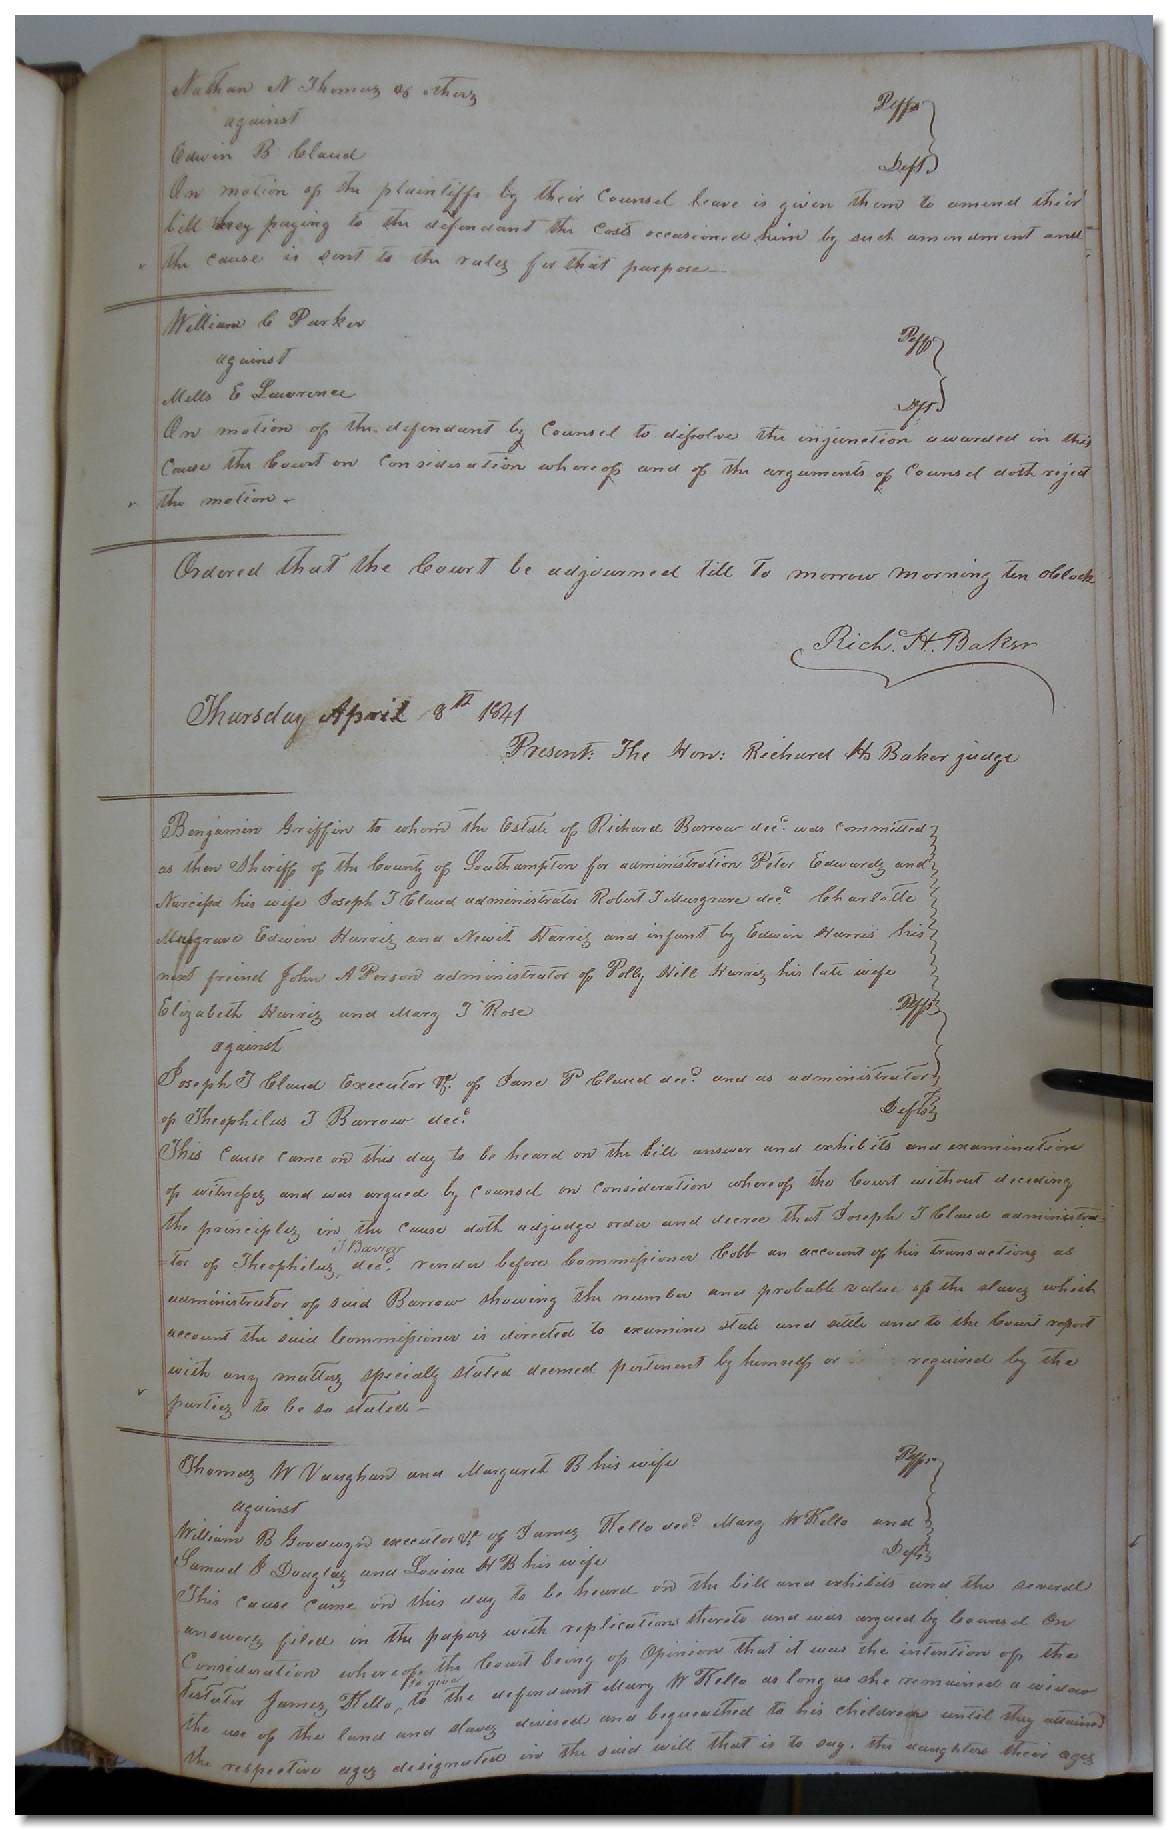 Nathan N Thomas & others Plffs
against
Edwin B Claud Deft
On motion of the plaintiffs by their Counsel leave is given them to amend their
bill they paying to the defendant the Costs occasioned him by such amendment and
the cause is sent to the rules for that purpose
William C Parker Plff
against
Mills E Lawrence Deft
On motion of the defendant by Counsel to dissolve the injunction awarded in this
Cause the Court on Consideration whereof and of the arguments of Counsel doth reject
the motion -
Ordered that the Court be adjourned till to morrow morning ten oClock
Rich.d H. Baker
Thursday April 8th 1841
Present: The Hon: Richard H Baker judge
Benjamin Griffin to whom the Estate of Richard Barrow decd was committed
as then Sheriff of the County of Southampton for administration Peter Edwards and
Narcissa his wife Joseph T Claud administrator Robert T Musgrave decd Charlotte
Musgrave Edwin Harris and Newit Harris and infant by Edwin Harris his
next friend John A Person administrator of Polly Hill Harris his late wife
Elizabeth Harris and Mary T Rose Plffs
against
Joseph T Claud Executor &c. of Jane P Claud decd. and as administrator
of Theophilus T Barrow decd. Defts
This Cause came on this day to be heard on the bill answer and exhibits and examination
of witnesses and was argued by counsel on consideration whereof the Court without deciding
the principles in the cause doth adjudge order and decree that Joseph T Claud administra-
-tor of Theophilus T Barrow decd. render before Commissioner Cobb an account of his transactions as
administrator of said Barrow showing the number and probable value of the slaves which
account the said Commissioner is directed to examine state and settle and to the Court report
with any matters specially stated deemed pertinent by himself or required by the
parties to be so stated -
Thomas W Vaughan and Margaret B his wife Plffs
against
William B Goodwyn executor &c of James Kello decd. Mary W Kello and
Samuel J Douglas and Louisa H B his wife Defts
This cause came on this day to be heard on the bill and exhibits and the several
answers filed in the papers with replications thereto and was argued by Counsel On
Consideration whereof the Court being of Opinion that it was the intention of the
testator James Kello, to give to the defendant Mary W Kello as long as she remained a widow
the use of the land and slaves devised and bequeathed to his children until they attained
the respective ages designated in the said will that is to say. the daughters their ages